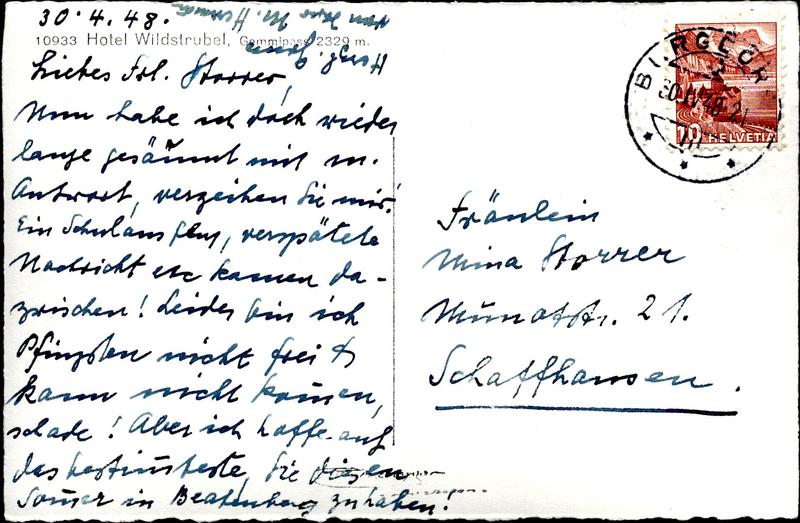 30.4.48.
10933 Hotel Wildstrubel, Gemmipass 2329 m.
Liebes Frl. Storrer,
Nun habe ich doch wieder
lange gesäumt mit m.
Antwort, verzeihen Sie mir!
Ein Schulausflug, verspätete
Nachricht etc kamen da-
zwischen! Leider bin ich
Pfingsten nicht frei &
kann nicht kommen,
schade! Aber ich hoffe auf
das bestimmteste, Sie diesen
Sommer in Beatenberg zu haben!
Herzl.
von Ihrer M.
BURGDORF
30.IV.48-21
10 HELVETIA
Fräulein
Mina Storrer
Münotstr. 21.
Schaffhausen.